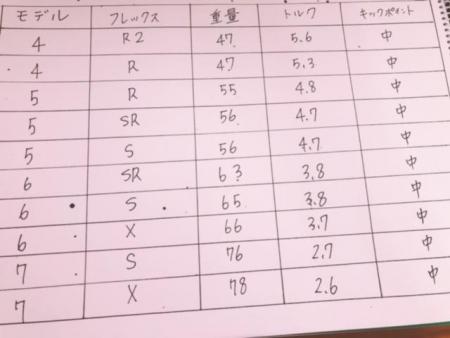 モデル フレックス 重量 トルク キックポイント
4 R2 47 5.6 中
4 R 47 5.3 中
5 R 55 4.8 中
5 SR 56 4.7 中
5 S 56 4.7 中
6 SR 63 3.8 中
6 S 65 3.8 中
6 X 66 3.7 中
7 S 76 2.7 中
7 X 78 2.6 中